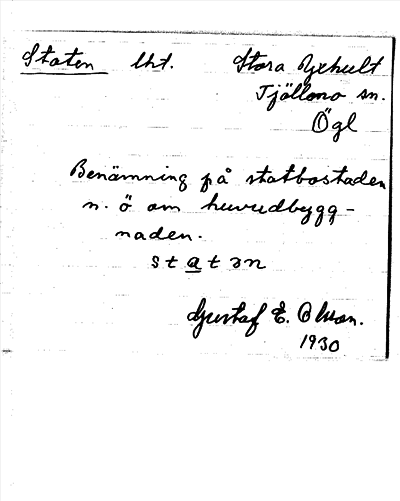 Staten lht. Stora Yxhult
Tjällmo sn.
Ögl
Benämning på statbostaden
n. ö om huvudbygg-
naden.
statən
Gustaf E. Olson.
1930